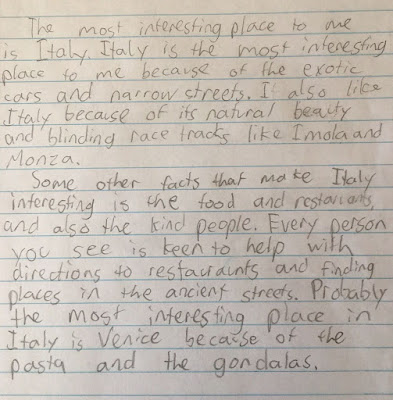 The most interesting place to me
is Italy. Italy is the most interesting
place to me because of the exotic
cars and narrow streets. I also like
Italy because of its natural beauty
and blinding race tracks like Imola and
Monza.
Some other facts that make Italy
interesting is the food and restaurants,
and also the kind people. Every person
you see is keen to help with
directions to restauraunts and finding
places in the ancient streets. Probably
the most interesting place in
Italy is Venice because of the
pasta and the gondalas.